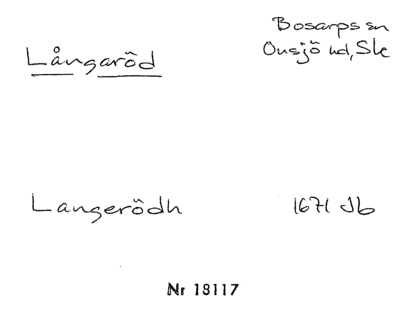 Långaröd
Bosarps sn
Onsjö hd, Sk
Langerödh
1671 Jb
Nr 18117